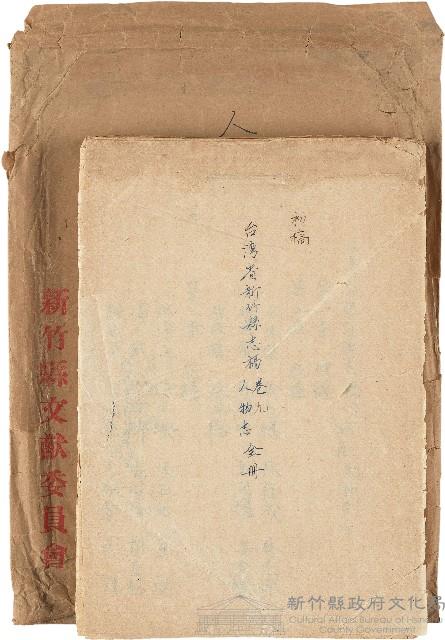 人
初稿
台湾省新竹縣志稿 卷九
人物志 全冊
新竹縣文獻委員會
新竹縣政府文化局
Cultural Affairs Bureau of Hsinchu
County Government